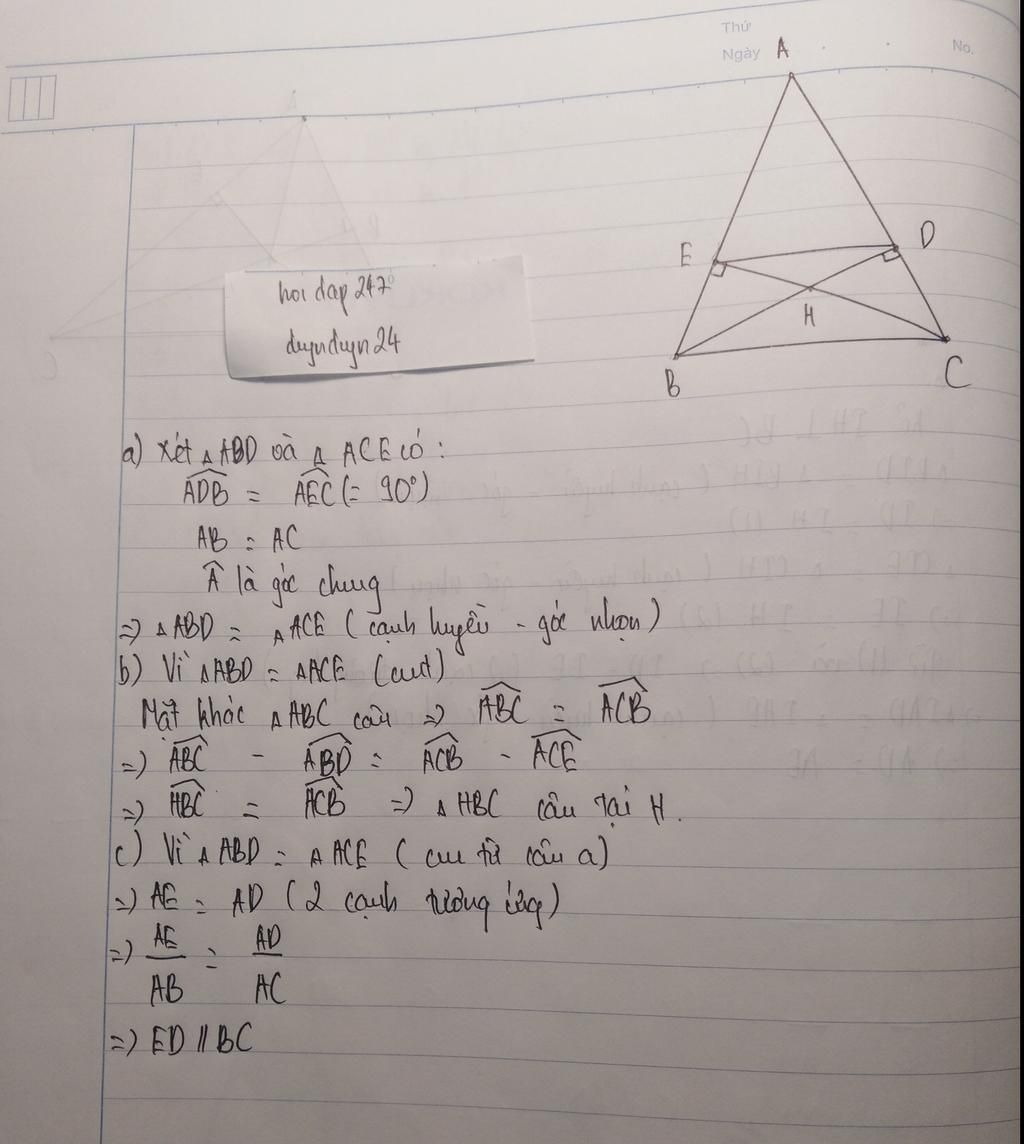 Thứ
Ngày
No.
A
E
D
H
B
C
hoi dap 247
duynduyn24
a) Xét △ABD và △ACE có:
\widehat{ADB} = \widehat{AEC} (= 90°)
AB = AC
\widehat{A} là góc chung
=> △ABD = △ACE (cạnh huyền - góc nhọn)
b) Vì △ABD = △ACE (cmt)
Mặt khác △ABC cân => \widehat{ABC} = \widehat{ACB}
=> \widehat{ABC} - \widehat{ABD} = \widehat{ACB} - \widehat{ACE}
=> \widehat{HBC} = \widehat{ACB} => △HBC cân tại H.
c) Vì △ABD = △ACE (cm từ câu a)
=> AE = AD (2 cạnh tương ứng)
=> AE/AB = AD/AC
=> ED // BC